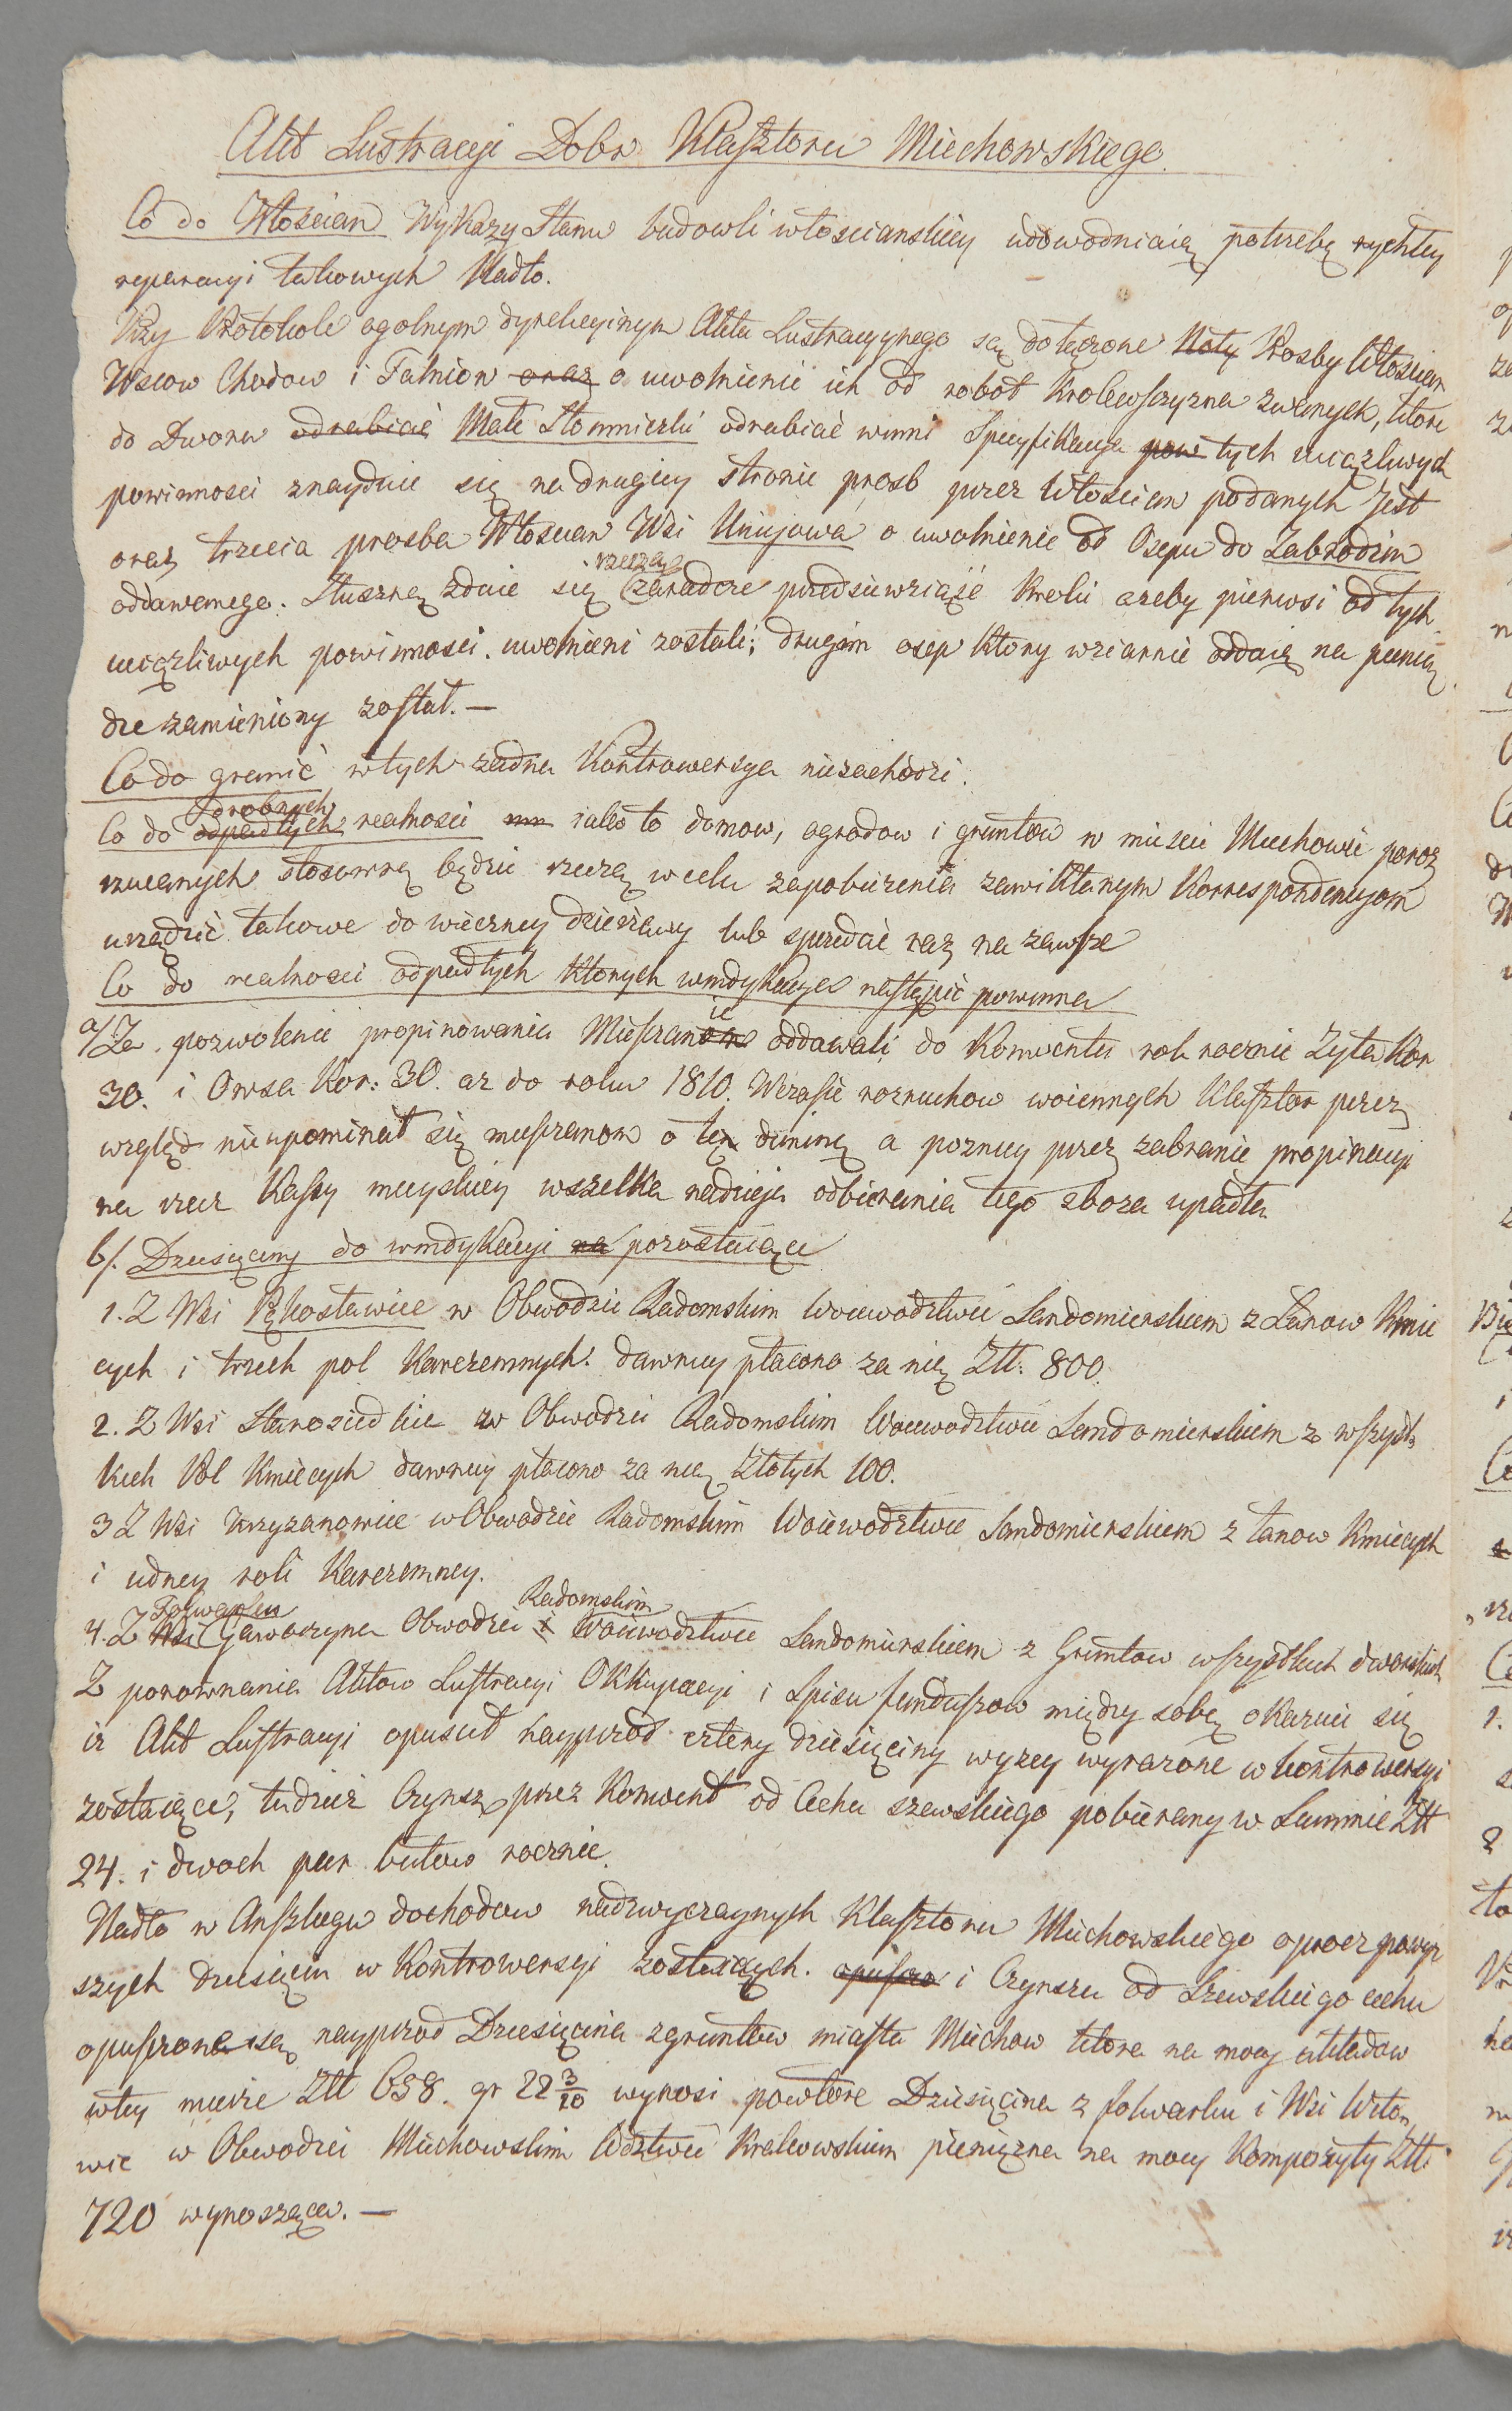 Akt Lustracyi Dobr Klasztoru Miechowskiego.
Co do Włościan Wykazy Stanu budowli włościanskiey udowodniaią potrzebę rychłey
reperacyi takowych Nadto.
Przy Protokole ogolnym dyrekcyinym Aktu Lustracyynego są dołączone Noty Prosby Włościan
Wsiow Chodow i Falniow oraz o uwolnienie ich od robot Krolewszczyzna zwanych, ktore
do Dworu odrabiać Małe Słomniczki odrabiać winni Specyfikacya pow tych uciązliwych
powinnosci znayduie się na drugiey stronie prosb przez Włościan podanych Jest
oraz trzecia prosba Włoscian Wsi Uniejowa o uwolnienie od Osepu do Zabrodzim
rzeczą
oddawanego. Słuszną zdaie się zaradcze przedsiewziąść kroki azeby pierwsi od tych
uciązliwych powinnosci uwolnieni zostali; drugim osep ktory wziarnie oddaią na pienią
dze zamieniony został. —
Co do granic wtych zadna Kontrowersya niezachodzi.
drobnych
Co do odpadłych realnosci iako to domow, ogrodow i gruntow w miescie Miechowie poroz
rzucanych stosowną będzie rzeczą w celu zapobiezenia zawikłanym Korrespondencyom
urządzić takowe do wieczney dzierżawy lub sprzedać raz na zawsze
Co do realnosci odpadłych ktorych windykacya nastąpić powinna
ie
a/ Za pozwolenie propinowania Mieszczanow oddawali do Konwentu rok rocznie Zyta Kor
30. i Owsa Kor: 30. az do roku 1810. Wczasie rozruchow woiennych Klasztor przez
wzgląd nieupominał się mieszczanom o tę daninę a pozniey przez zabranie propinacyi
na rzecz Kassy mieyskiey wszelka nadzieja odbierania tego zboza upadła
b/. Dziesięciny do windykacyi na pozostaiące
1. Z Wsi Rzkosławice w Obwodzie Radomskim Woiewodztwie Sandomierskiem z Łanow Kmie
cych i trzech pol Karczemnych. dawniey płacono za nią Złt: 800.
2. Z Wsi Starosiedlice w Obwodzie Radomskim Woiewodztwie Sandomierskiem z wszyst
kich Pol Kmiecych dawniey płacono za nią Złotych 100.
3 Z Wsi Krzyzanowice w Obwodzie Radomskim Woiewodztwie Sandomierskiem z łanow Kmiecych
i iedney roli Karczemney.
Folwarku Radomskim
4. Z Wsi Gawarzyna Obwodzie i Woiewodztwie Sandomierskiem z Gruntow wszystkich dworskich
Z porownania Aktow Lustracyi Okkupacyi i Spisu funduszow między sobą okazuie się
iz Akt Lustracyi opuscił nayprzod cztery dziesięciny wyzey wyrazone w kontrowersyi
zostaiące, tudzież Czynsz przez Konwent od Cechu szewskiego pobierany w Summie Złt
24. i dwoch par butow rocznie.
Nadto w Anszlagu dochodow nadzwyczaynych Klasztoru Miechowskiego oprocz powyz
szych dziesięcin w Kontrowersyi zostaiących. opuszczo i Czynszu od Szewskiego cechu
opuszczone są nayprzod Dziesięcina zgruntow miasta Miechow ktora na mocy układow
wtey mierze Złt 658. gr 22 3/10 wynosi powtore Dziesięcina z folwarku i Wsi Witow
wic w Obwodzie Miechowskim Wdztwie Krakowskiem pieniężna na mocy Kompozyty Złt.
720 wynosząca. —